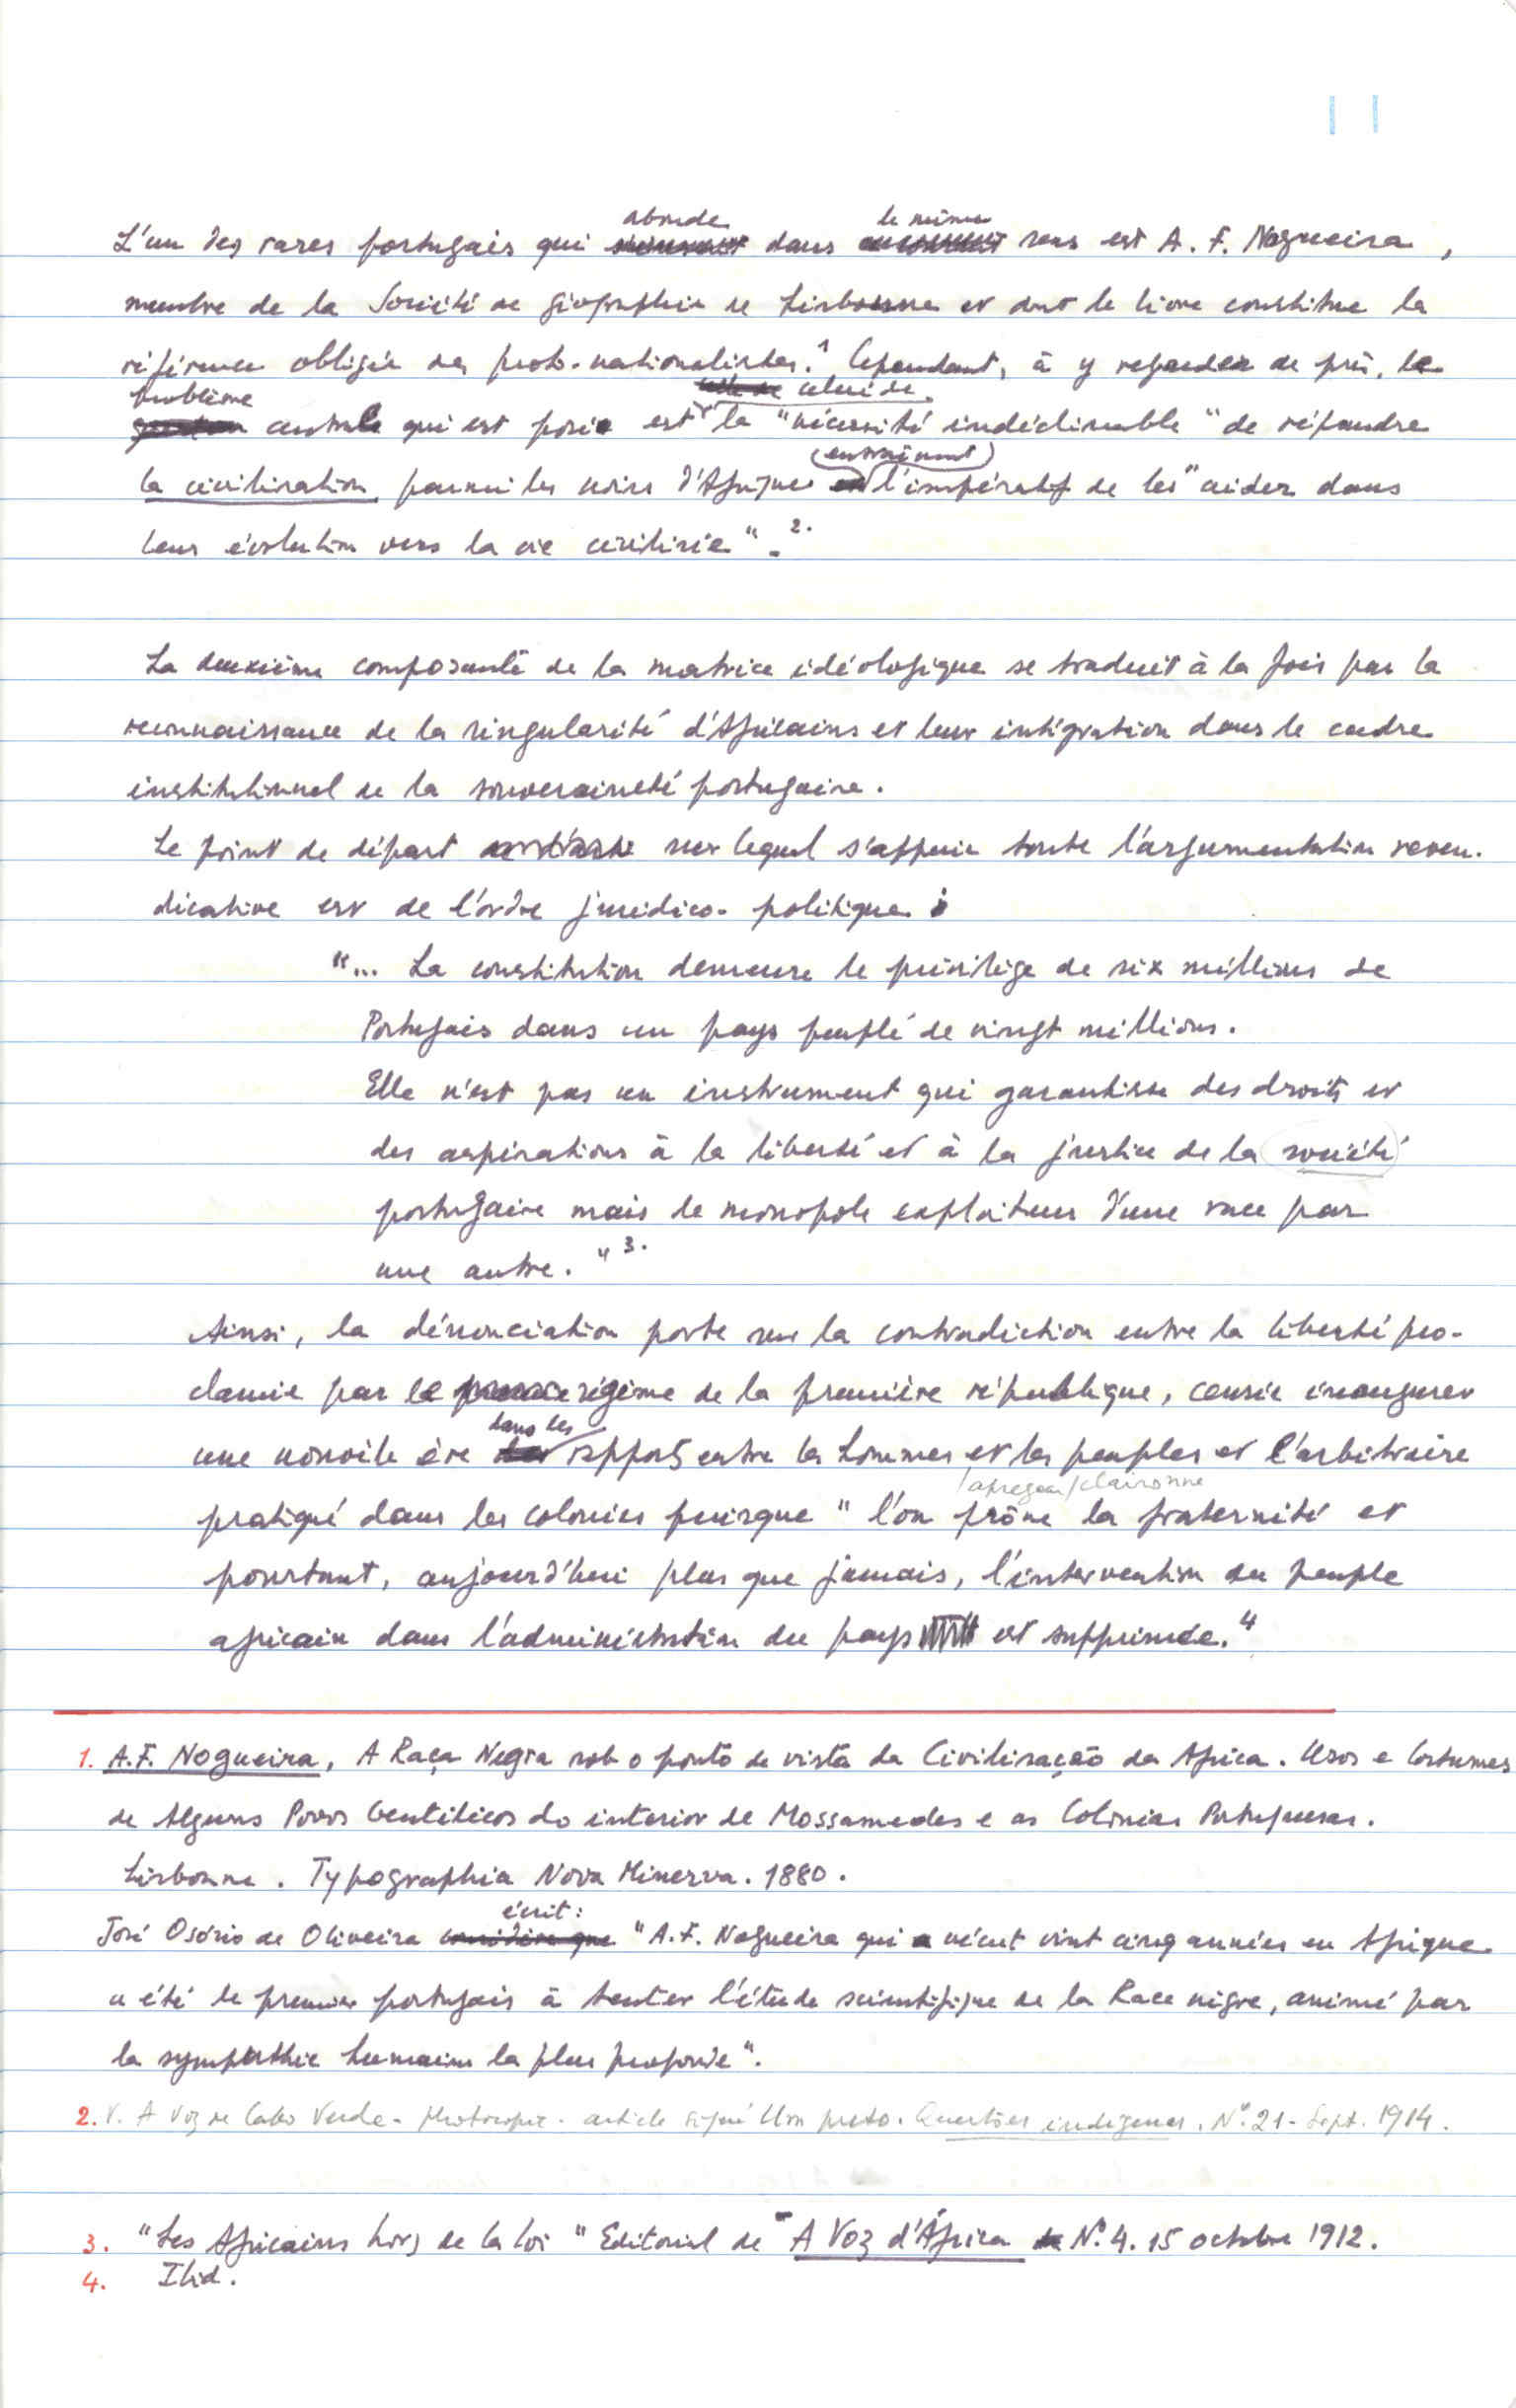 11
abonde le même
L'un des rares portugais qui dans sens est A. F. Nogueira,
membre de la Société de géographie de Lisbonne et dont le livre constitue la
référence obligée des proto-nationalistes.1 Cependant, à y regarder de près, le
problème celui de
centrale qui est posé est la "nécessité indéclinable" de répandre
(entraînant)
la civilisation parmi les noirs d'Afrique l'impératif de les "aider dans
leur évolution vers la vie civilisée". 2.
La deuxième composante de la matrice idéologique se traduit à la fois par la
reconnaissance de la singularité d'Africains et leur intégration dans le cadre
institutionnel de la souveraineté portugaise.
Le point de départ sur lequel s'appuie toute l'argumentation reven-
dicative est de l'ordre juridico-politique :
"... La constitution demeure le privilège de six millions de
Portugais dans un pays peuplé de vingt millions.
Elle n'est pas un instrument qui garantisse des droits et
des aspirations à la liberté et à la justice de la (société)
portugaise mais le monopole exploiteur d'une race par
une autre." 3.
Ainsi, la dénonciation porte sur la contradiction entre la liberté pro-
clamée par le régime de la première république, censée inaugurer
dans les
une nouvelle ère rapports entre les hommes et les peuples et l'arbitraire
/apregoar/claironne
pratiqué dans les colonies puisque "l'on prône la fraternité et
pourtant, aujourd'hui plus que jamais, l'intervention du peuple
africain dans l'administration du pays est supprimée." 4
1. A.F. Nogueira, A Raça Negra sob o ponto de vista da Civilisação da Africa. Usos e Costumes
de Alguns Povos Gentilicos do interior de Mossamedes e as Colonias Portuguesas.
Lisbonne. Typographia Nova Minerva. 1880.
écrit :
José Osório de Oliveira "A.F. Nogueira qui a vécut vint cinq années en Afrique
a été le premier portugais à tenter l'étude scientifique de la Race nègre, animé par
la sympathie humaine la plus profonde".
2. V. A Voz de Cabo Verde - Photocopie - article signé Um preto. Questões indigenas. Nº 21 - Sept. 1914.
3. "Les Africains hors de la loi" Editorial de A Voz d'África Nº 4. 15 octobre 1912.
4. Ibid.